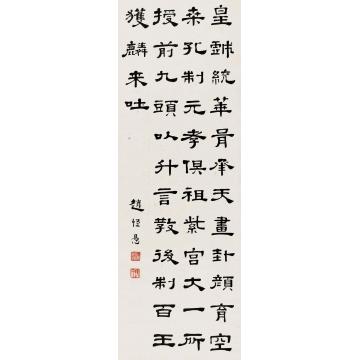 皇戲統華胥承天畫卦顏育空
桑孔制元孝俱祖紫宮大一所
授前九頭以升言教後制百王
獲麟来吐
趙恒惖